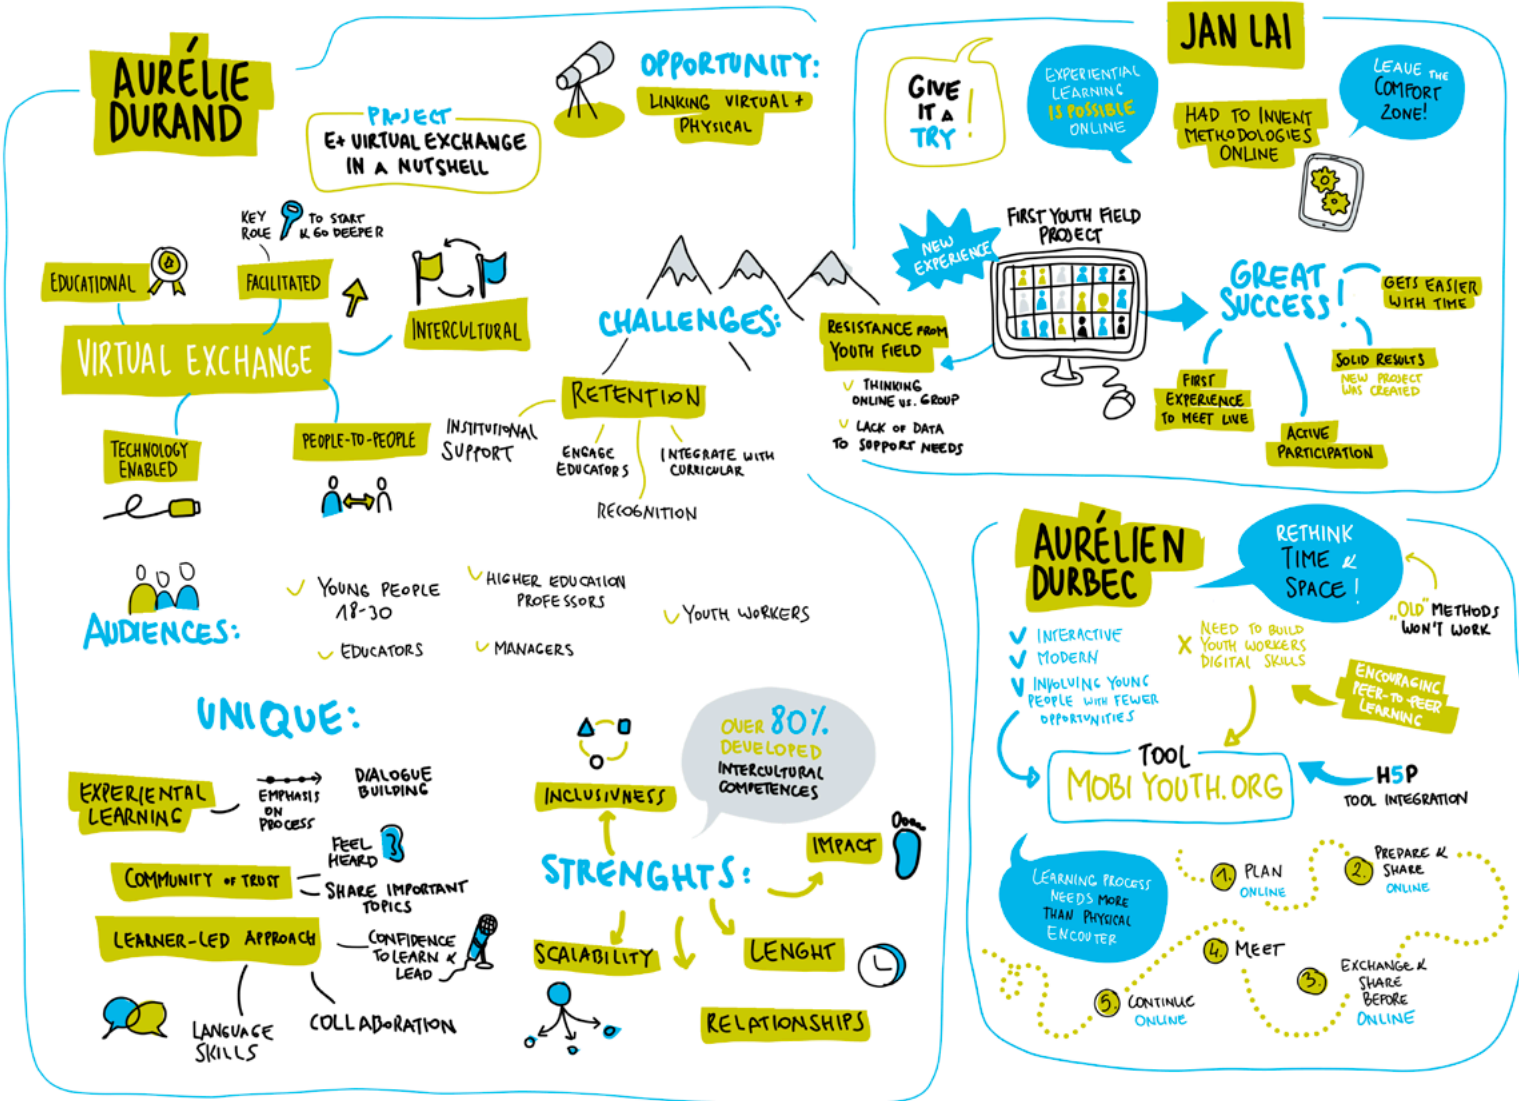 AURÉLIE
DURAND
PROJECT
E+ VIRTUAL EXCHANGE
IN A NUTSHELL
OPPORTUNITY:
LINKING VIRTUAL +
PHYSICAL
KEY
ROLE
TO START
& GO DEEPER
EDUCATIONAL
FACILITATED
INTERCULTURAL
VIRTUAL EXCHANGE
TECHNOLOGY
ENABLED
PEOPLE-TO-PEOPLE
CHALLENGES:
RETENTION
INSTITUTIONAL
SUPPORT
ENGAGE
EDUCATORS
RECOGNITION
INTEGRATE WITH
CURRICULAR
RESISTANCE FROM
YOUTH FIELD
THINKING
ONLINE VS. GROUP
LACK OF DATA
TO SUPPORT NEEDS
AUDIENCES:
YOUNG PEOPLE
18-30
HIGHER EDUCATION
PROFESSORS
YOUTH WORKERS
EDUCATORS
MANAGERS
UNIQUE:
EXPERIENTAL
LEARNING
EMPHASIS
ON
PROCESS
DIALOGUE
BUILDING
COMMUNITY OF TRUST
FEEL
HEARD
SHARE IMPORTANT
TOPICS
LEARNER-LED APPROACH
CONFIDENCE
TO LEARN &
LEAD
LANGUAGE
SKILLS
COLLABORATION
OVER 80%
DEVELOPED
INTERCULTURAL
COMPETENCES
INCLUSIVNESS
STRENGHTS:
IMPACT
SCALABILITY
LENGHT
RELATIONSHIPS
JAN LAI
GIVE
IT A
TRY !
EXPERIENTIAL
LEARNING
IS POSSIBLE
ONLINE
HAD TO INVENT
METHODOLOGIES
ONLINE
LEAVE THE
COMFORT
ZONE!
NEW
EXPERIENCE
FIRST YOUTH FIELD
PROJECT
GREAT
SUCCESS!
GETS EASIER
WITH TIME
SOLID RESULTS
NEW PROJECT
WAS CREATED
FIRST
EXPERIENCE
TO MEET LIVE
ACTIVE
PARTICIPATION
AURÉLIEN
DURBEC
RETHINK
TIME &
SPACE!
"OLD" METHODS
WON'T WORK
INTERACTIVE
MODERN
INVOLVING YOUNG
PEOPLE WITH FEWER
OPPORTUNITIES
X NEED TO BUILD
YOUTH WORKERS
DIGITAL SKILLS
ENCOURAGING
PEER-TO-PEER
LEARNING
TOOL
MOBI YOUTH.ORG
H5P
TOOL INTEGRATION
LEARNING PROCESS
NEEDS MORE
THAN PHYSICAL
ENCOUTER
1. PLAN
ONLINE
2. PREPARE &
SHARE
ONLINE
3. EXCHANGE &
SHARE
BEFORE
ONLINE
4. MEET
5. CONTINUE
ONLINE